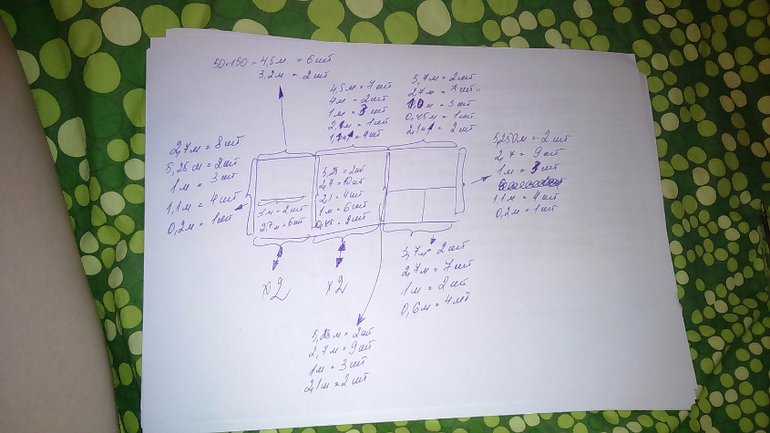 50×150 = 4,5м = 6шт
3,2м = 2шт
4,5м = 7шт
4м = 2шт
1м = 3шт
2,1м = 1шт
3,7м = 2шт
2,7м = 7шт
1,0м = 3шт
0,45м = 1шт
2,1м = 2шт
2,7м = 8шт
5,25м = 2шт
1м = 3шт
1,1м = 4шт
0,2м = 1шт
3м = 2шт
2,7м = 6шт
5,25 = 2шт
2,7 = 10шт
2,1 = 4шт
1м = 6шт
0,45 = 2шт
5,250м = 2шт
2,7 = 9шт
1м = 3шт
1,1м = 4шт
0,2м = 1шт
×2
×2
3,7м 2шт
2,7м = 7шт
1м = 2шт
0,6м = 4шт
5,25м = 2шт
2,7м = 9шт
1м = 3шт
2,1м = 2шт